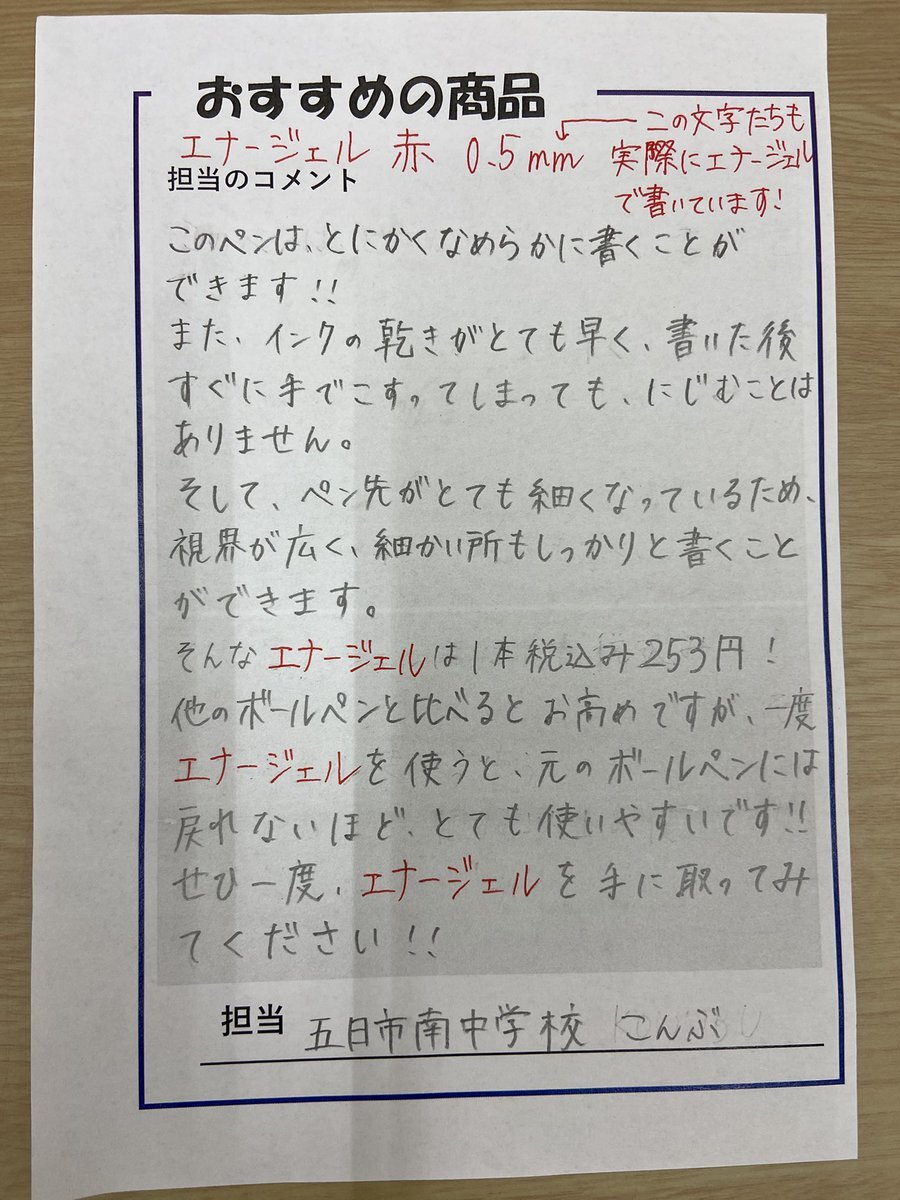 おすすめの商品
エナージェル 赤 0.5mm
この文字たちも
実際にエナージェル
で書いています!
担当のコメント
このペンは、とにかくなめらかに書くことが
できます!!
また、インクの乾きがとても早く、書いた後
すぐに手でこすってしまっても、にじむことは
ありません。
そして、ペン先がとても細くなっているため、
視界が広く、細かい所もしっかりと書くこと
ができます。
そんなエナージェルは1本税込み253円!
他のボールペンと比べるとお高めですが、一度
エナージェルを使うと、元のボールペンには
戻れないほど、とても使いやすいです!!
せひ一度、エナージェルを手に取ってみ
てください!!
担当 五日市南中学校 こんぶ